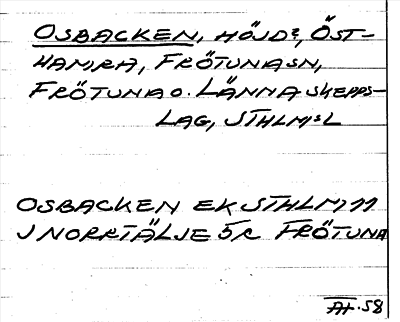 OSBACKEN, HÖJD?, ÖST-
HAMRA, FRÖTUNA SN,
FRÖTUNA O. LÄNNA SKEPPS-
LAG, STHLMS L
OSBACKEN EK STHLM 77
J NORRTÄLJE 5/2 FRÖTUNA
AH. 58